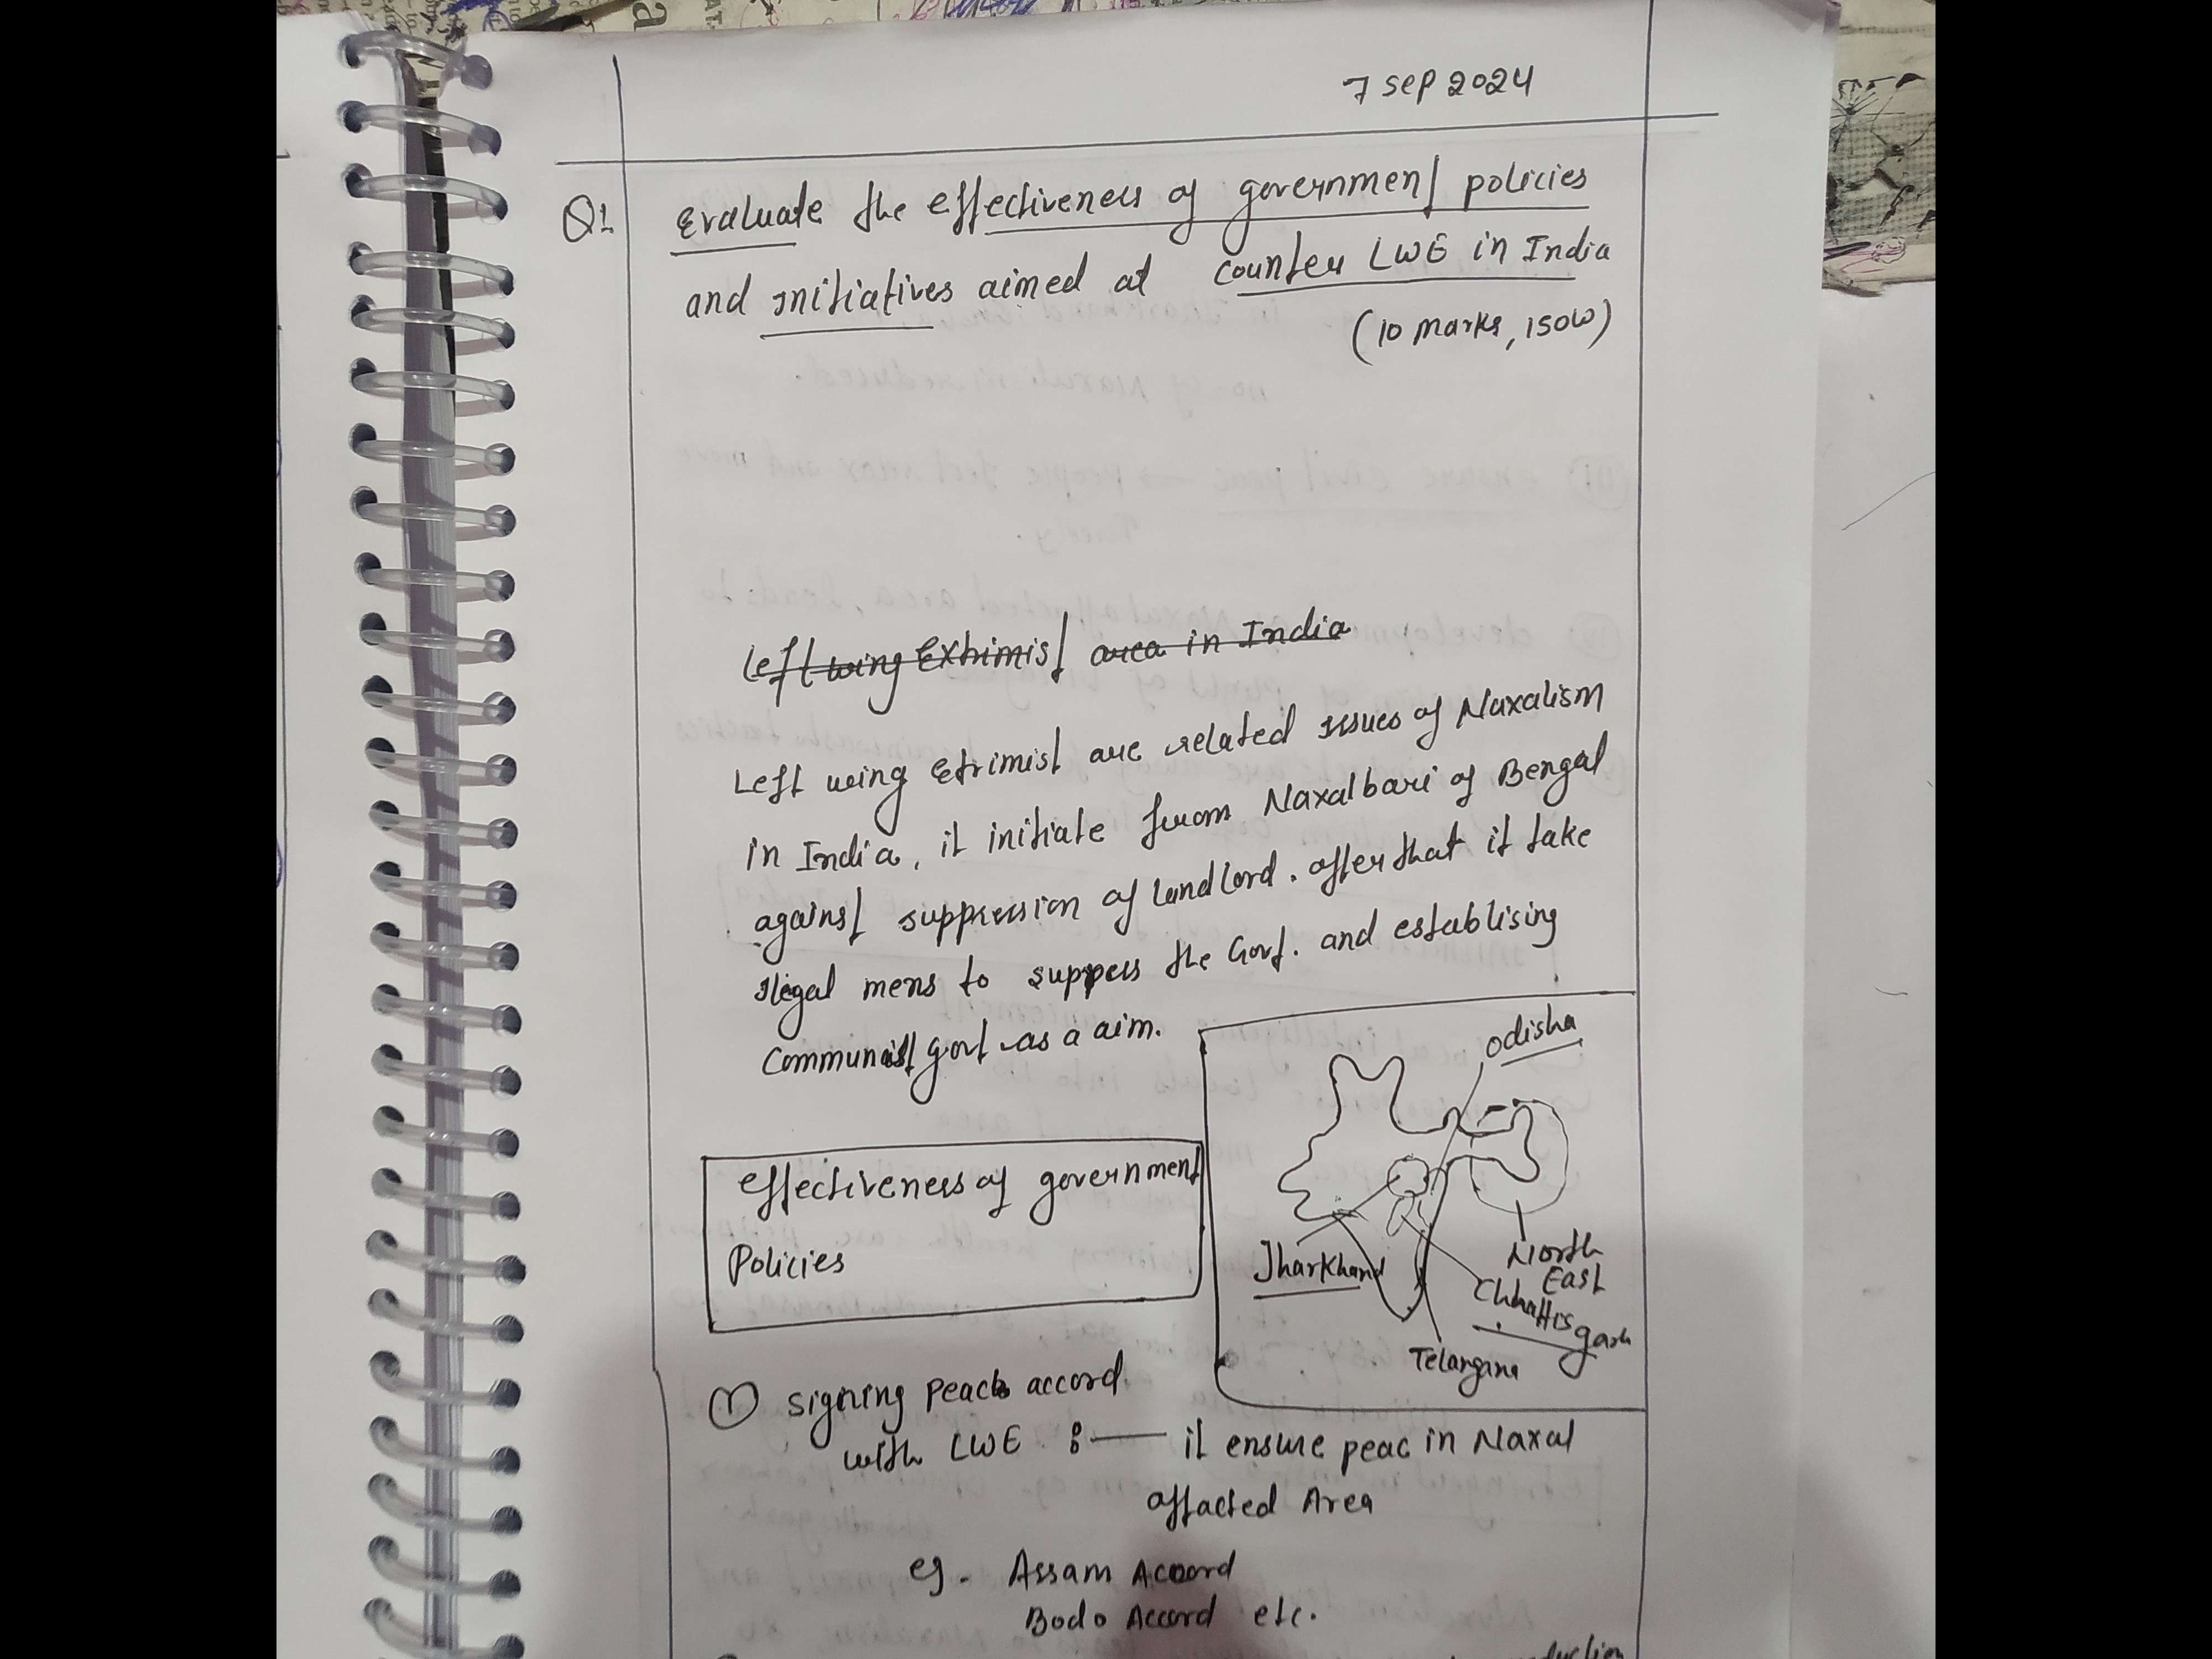 7 Sep 2024
Q1. Evaluate the effectiveness of government policies
and initiatives aimed at counter LWE in India
(10 marks, 150W)
Left wing Extrimist area in India
Left wing Etrimist are related issues of Naxalism
in India, it initiate from Naxalbari of Bengal
against suppression of landlord. after that it take
ilegal mens to suppess the Govt. and establising
Communist govt as a aim.
odisha
effectiveness of government
Policies
North
East
Jharkhand
Chhattis
garh
Telangana
① Signing Peace accord
with LWE :— it ensure peac in Naxal
affacted Area
eg - Assam Accord
Bodo Accord etc.